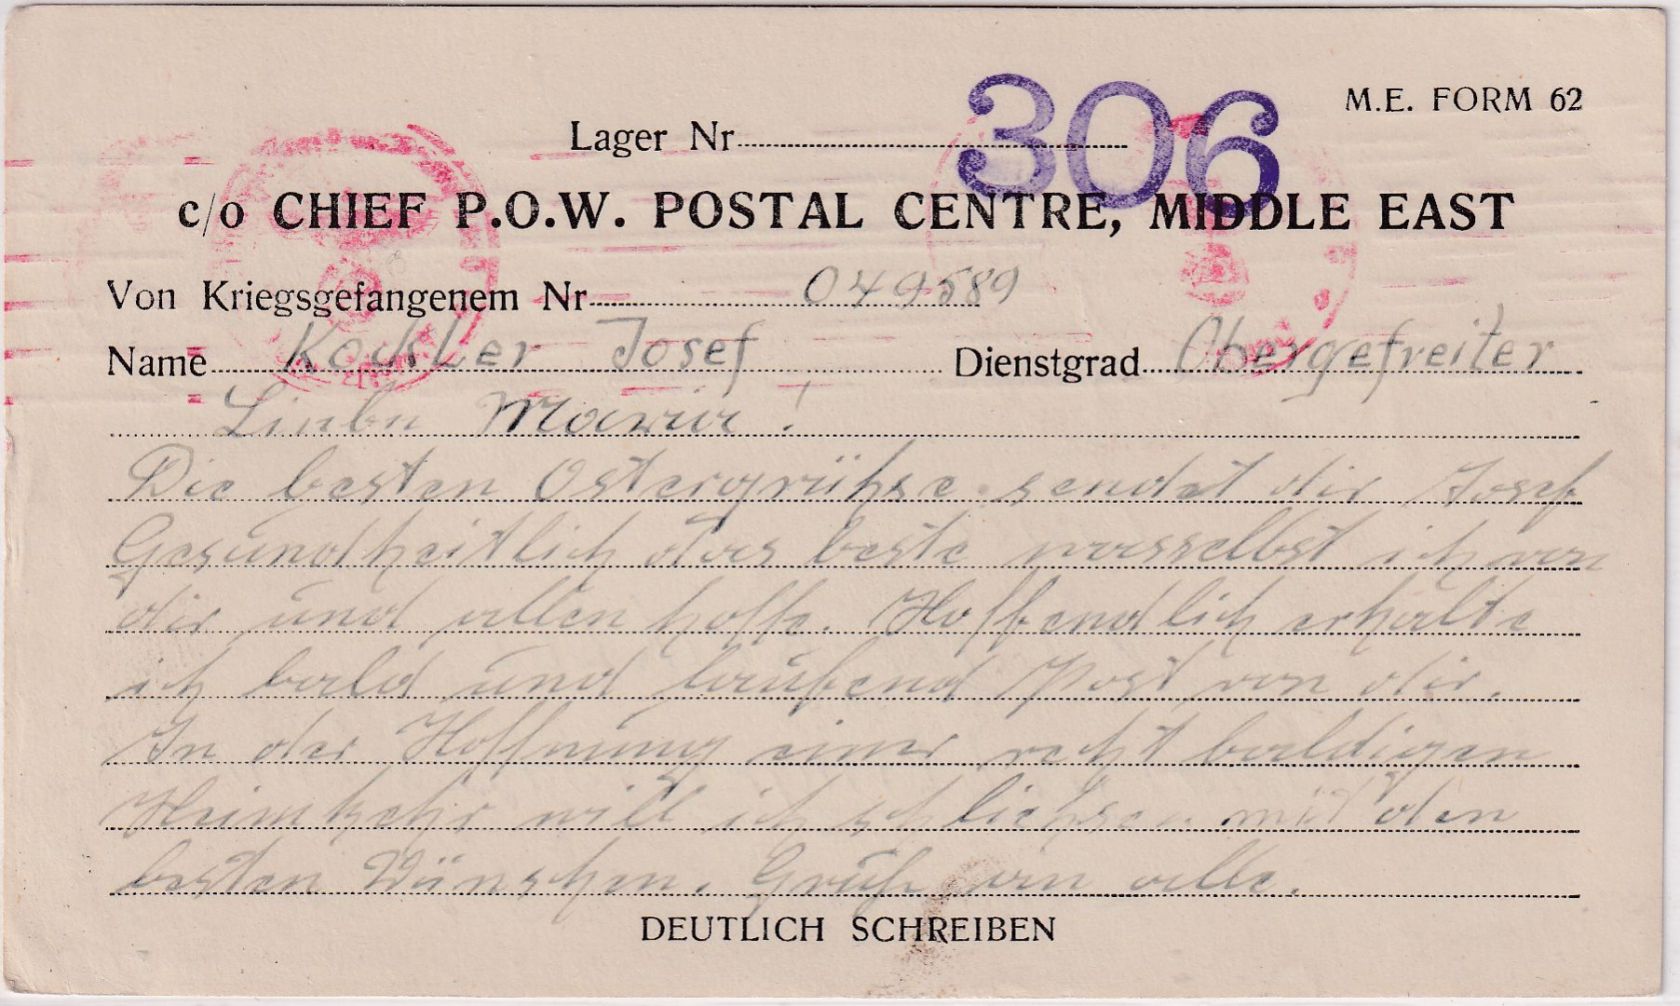 306
M.E. FORM 62
Lager Nr
c/o CHIEF P.O.W. POSTAL CENTRE, MIDDLE EAST
Von Kriegsgefangenem Nr 049589
Name Kockler Josef Dienstgrad Obergefreiter
Liebe Maria!
Die besten Ostergrühse sendet dir Josef
Gesundheitlich das beste wasselbst ich von
dir und allen hoffe. Hoffendlich erhalte
ich bald und laufend Post von dir.
In der Hoffnung einer recht baldigen
Heimkehr will ich schliehsen mit den
besten Wünschen. Gruß an alle.
DEUTLICH SCHREIBEN